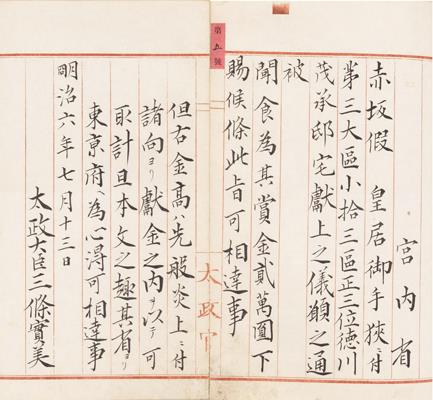 宮内省
赤坂假 皇居御手狹ニ付
第三大區小拾三區正三位徳川
茂承邸宅獻上之儀願之通
被
聞食為其賞金貳萬圓下
賜候條此旨可相達事
太政官
第五號
但右金高ハ先般炎上ニ付
諸向ヨリ獻金之内ヲ以テ可
取計且本文之趣其省ヨリ
東京府ヘ為心得可相達事
明治六年七月十三日
太政大臣三條實美